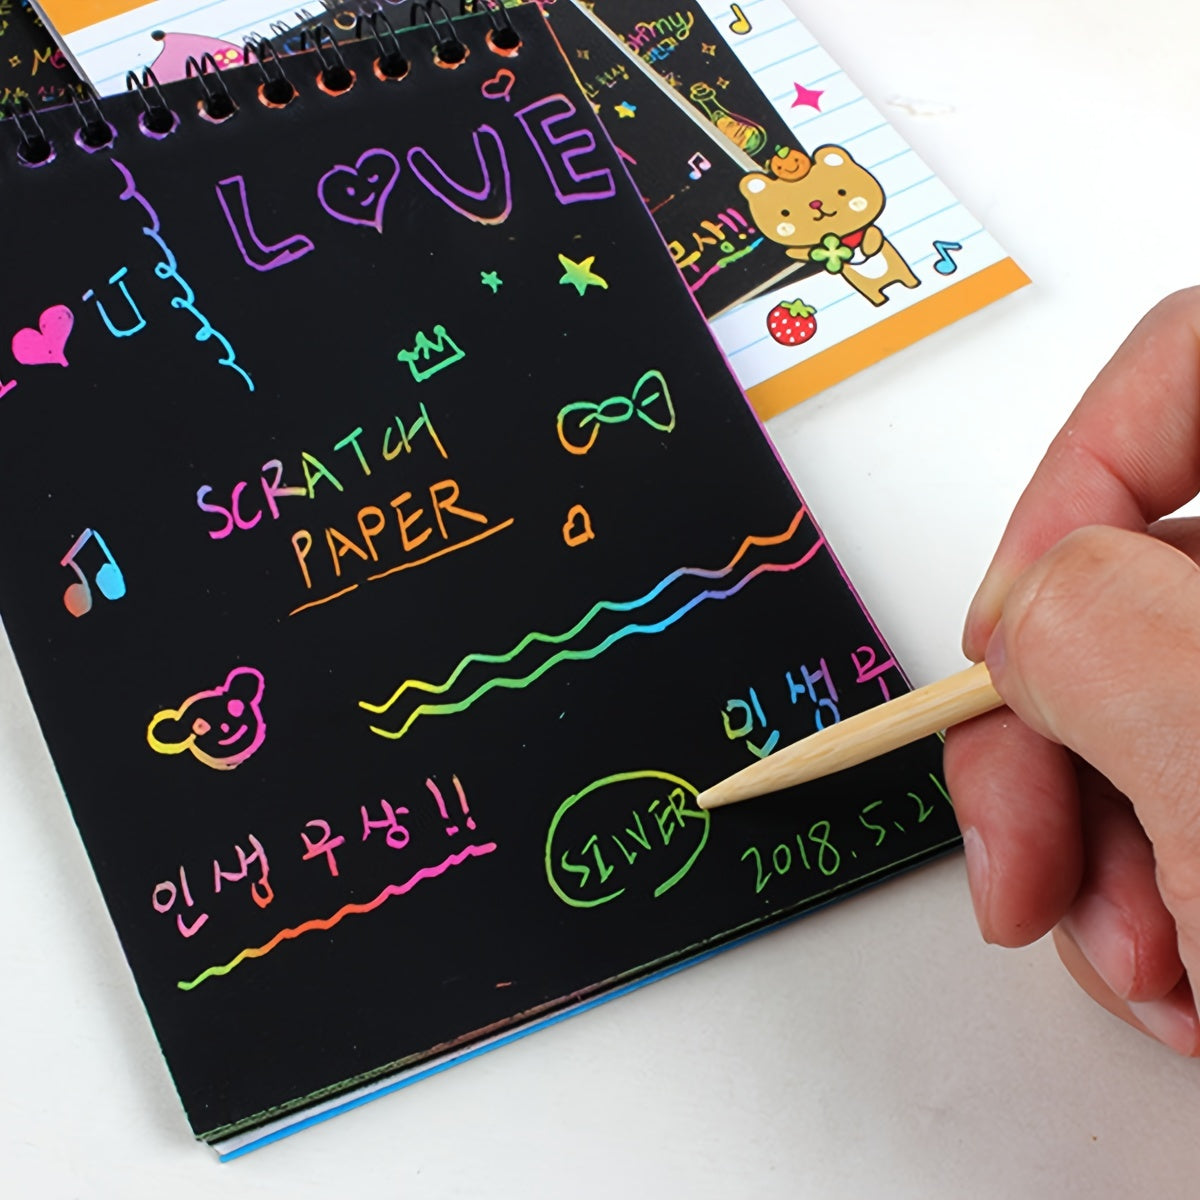 LOVE
I ♥ U
SCRATCH
PAPER
인생무
인생무상!!
SILVER
2018.5.21
무상!!